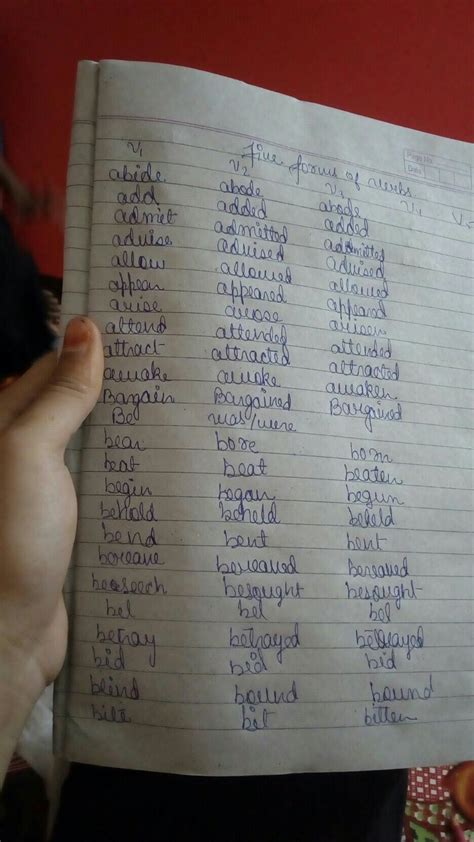 Page No.
Date
Five forms of verbs
V1 V2 V3 V4 V5
abide abode abode
add added added
admit admitted admitted
advise advised advised
allow allowed allowed
appear appeared appeared
arise arose arisen
attend attended attended
attract attracted attracted
awake awoke awaken
Bargain Bargained Bargained
Be was/were
bear bore born
beat beat beaten
begin began begun
behold beheld beheld
bend bent bent
bereave bereaved bereaved
beseech besought besought
bet bet bet
betray betrayed betrayed
bid bid bid
bind bound bound
bite bit bitten